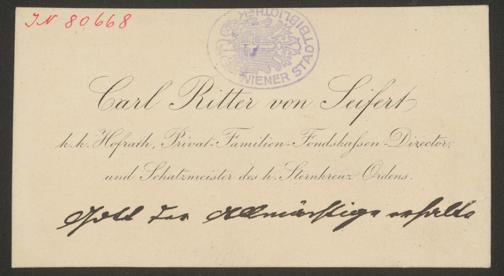 IN 80668
WIENER STADTBIBLIOTHEK
Carl Ritter von Seifert
k. k. Hofrath, Privat-Familien-Fondskassen-Director,
und Schatzmeister des h. Sternkreuz Ordens.
Gott der Allmächtige erhalte